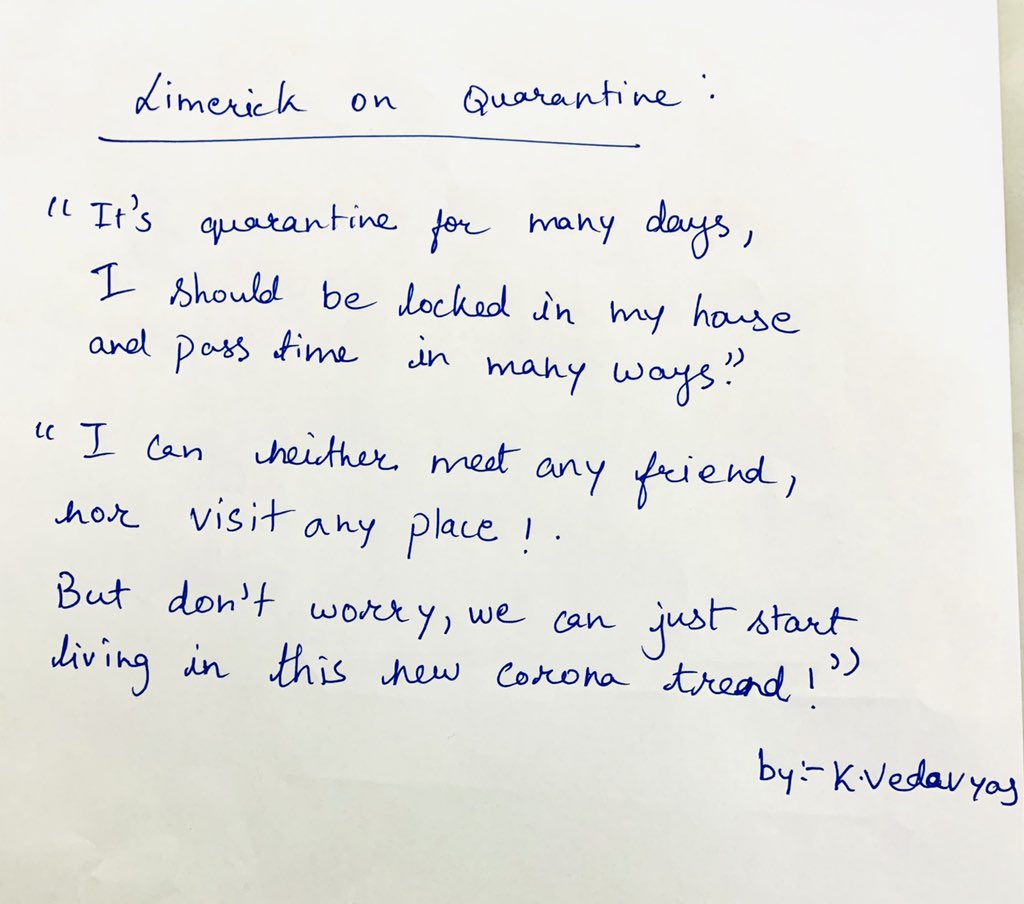 Limerick on Quarantine :
"It's quarantine for many days,
I should be locked in my house
and pass time in many ways."
"I can neither meet any friend,
nor visit any place ! .
But don't worry, we can just start
living in this new corona trend !"
by:- K.Vedavyas